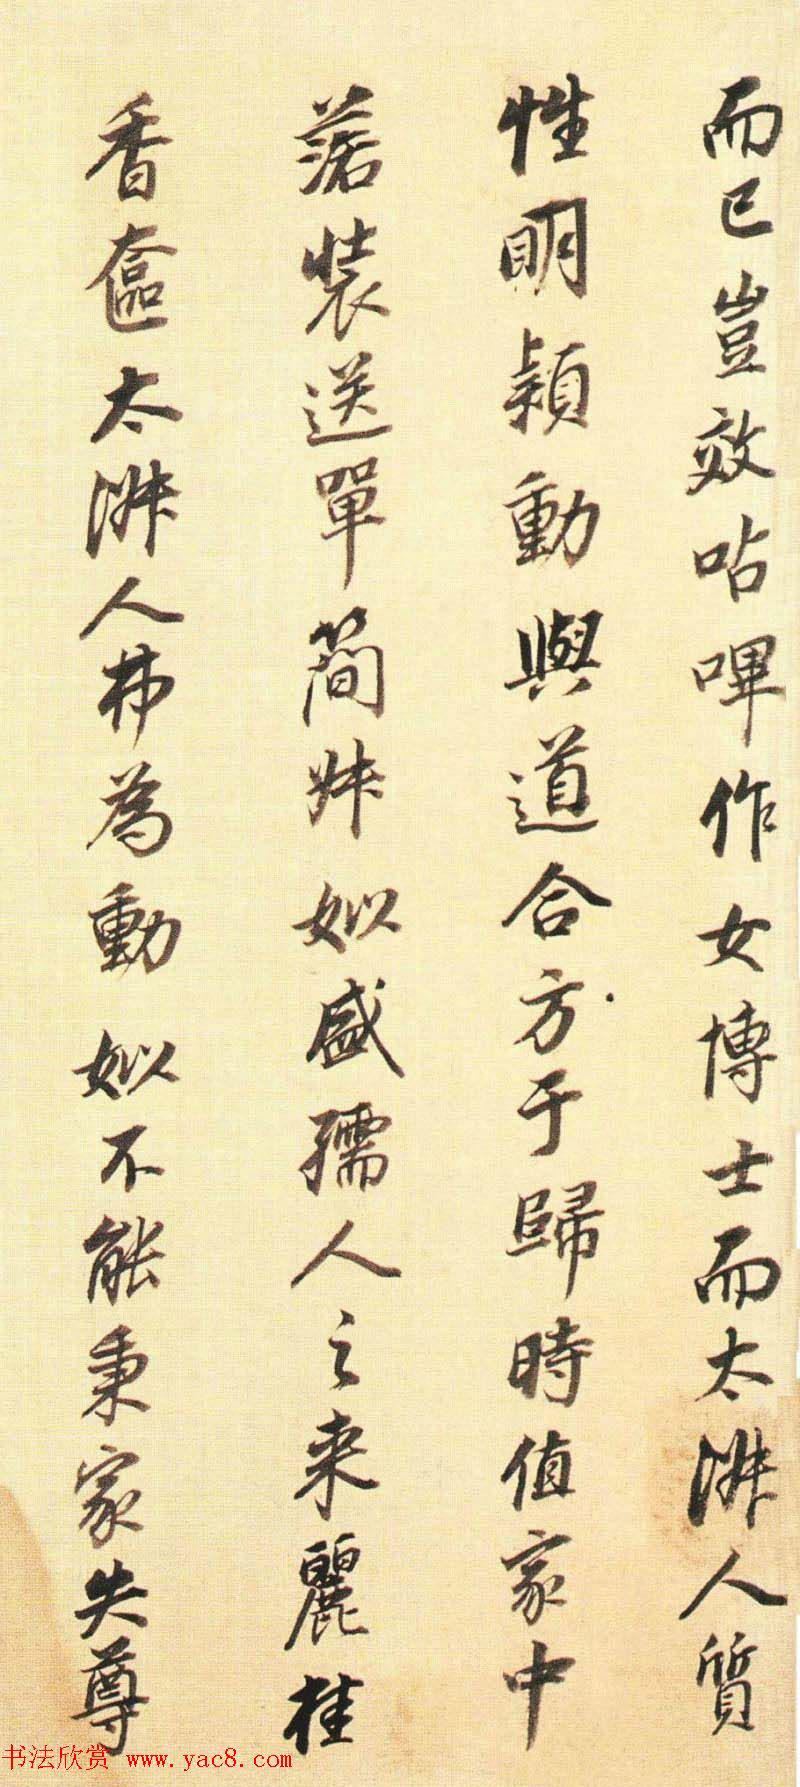 而已豈效呫嗶作女博士而太淑人質
性明穎動與道合方于歸時值家中
落裝送單簡姒盛孺人之来麗桂
香奩太淑人弗為動姒不能秉家失尊
书法欣赏 www.yac8.com